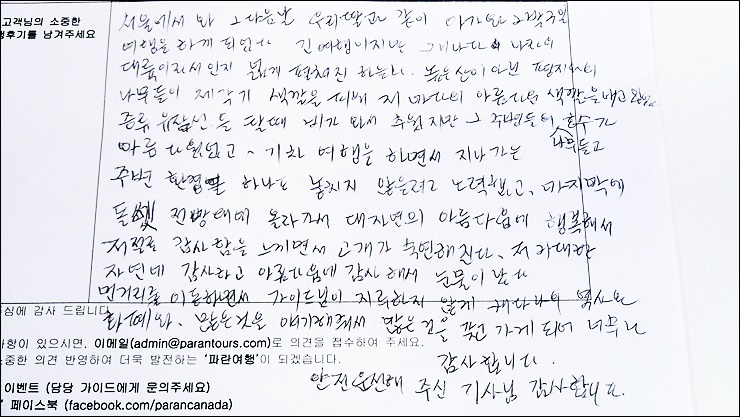 고객님의 소중한
행후기를 남겨주세요
서울에서 와 그 다음날 우리딸과 같이 아가와 2박 3일
여행을 하게 되었다 긴 여행이지만 캐나다의 나라의
대륙이라서인지 넓게 펼쳐진 하늘과. 높은 산이 아닌 평지의
나무들이 제각기 색깔을 띠며 저마다의 아름다운 색깔을 내고
유람선을 탈때 비가 와서 추웠지만 그 주변들의 호수가
아름다웠었고 ~ 기차 여행을 하면서 지나가는 나무들과
주변 환경을 하나도 놓치지 않을려고 노력했고, 마지막에
돌셋 전망대에 올라가서 대자연의 아름다움에 행복해서
저절로 감사함을 느끼면서 고개가 숙연해진다. 저 거대한
자연에 감사하고 아름다움에 감사해서 눈물이 났다
먼거리를 이동하면서 가이드님이 지루하지 않게 캐나다의 역사와
문화와. 많은것을 얘기해줘서 많은 것을 품고 가게 되어 너무나
감사합니다.
안전운전해 주신 기사님 감사합니다.
심에 감사 드립니다
사항이 있으시면, 이메일(admin@parantours.com)로 의견을 접수하여 주세요.
소중한 의견 반영하여 더욱 발전하는 '파란여행'이 되겠습니다.
이벤트 (담당 가이드에게 문의주세요)
페이스북 (facebook.com/parancanada)